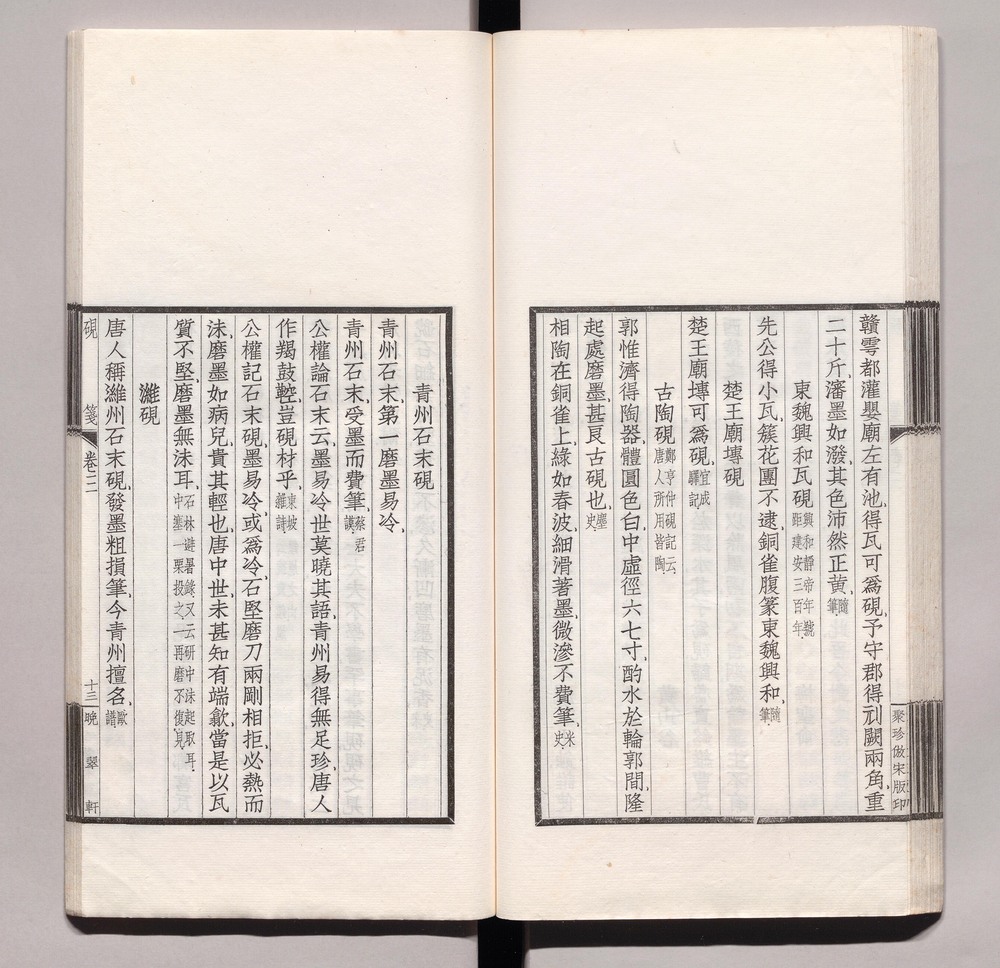 贛雩都灌嬰廟左有池得瓦可爲硯予守郡得刓闕兩角重
二十斤瀋墨如潑其色沛然正黃隨筆
東魏興和瓦硯興和靜帝年號距建安三百年
先公得小瓦簇花團不逮銅雀腹篆東魏興和隨筆
楚王廟塼硯
楚王廟塼可爲硯宜成驛記
古陶硯鄭亨仲硯記云唐人所用皆陶
郭惟濟得陶器體圓色白中虛徑六七寸酌水於輪郭間隆
起處磨墨甚良古硯也塵史
相陶在銅雀上綠如春波細滑著墨微滲不費筆米史
聚珍倣宋版印
青州石末硯
青州石末第一磨墨易冷
青州石末受墨而費筆蔡君謨
公權論石末云墨易冷世莫曉其語青州易得無足珍唐人
作羯鼓鞚豈硯材乎東坡雜誌
公權記石末硯墨易冷或爲冷石堅磨刀兩剛相拒必熱而
沬磨墨如病兒貴其輕也唐中世未甚知有端歙當是以瓦
質不堅磨墨無沬耳石林避暑錄又云研中沬起取耳中塞一粟投之一再磨不復見
濰硯
唐人稱濰州石末硯發墨粗損筆今青州擅名歐譜
硯箋 卷三 十三 晚翠軒